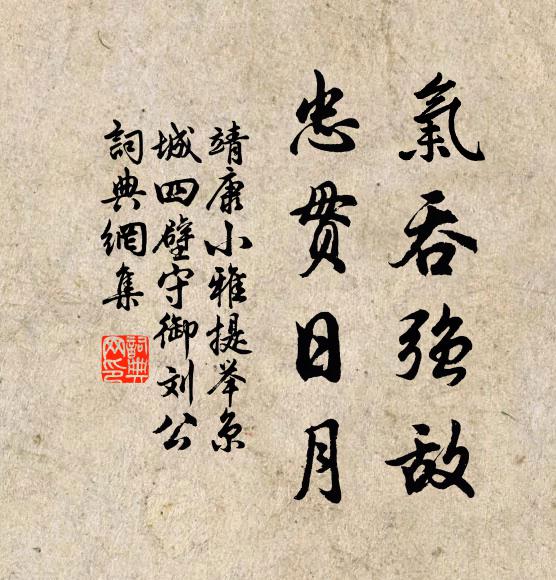 氣吞強敵
忠贯日月
靖康小雅提举京
城四壁守御刘公
詞典網集
詞典网印